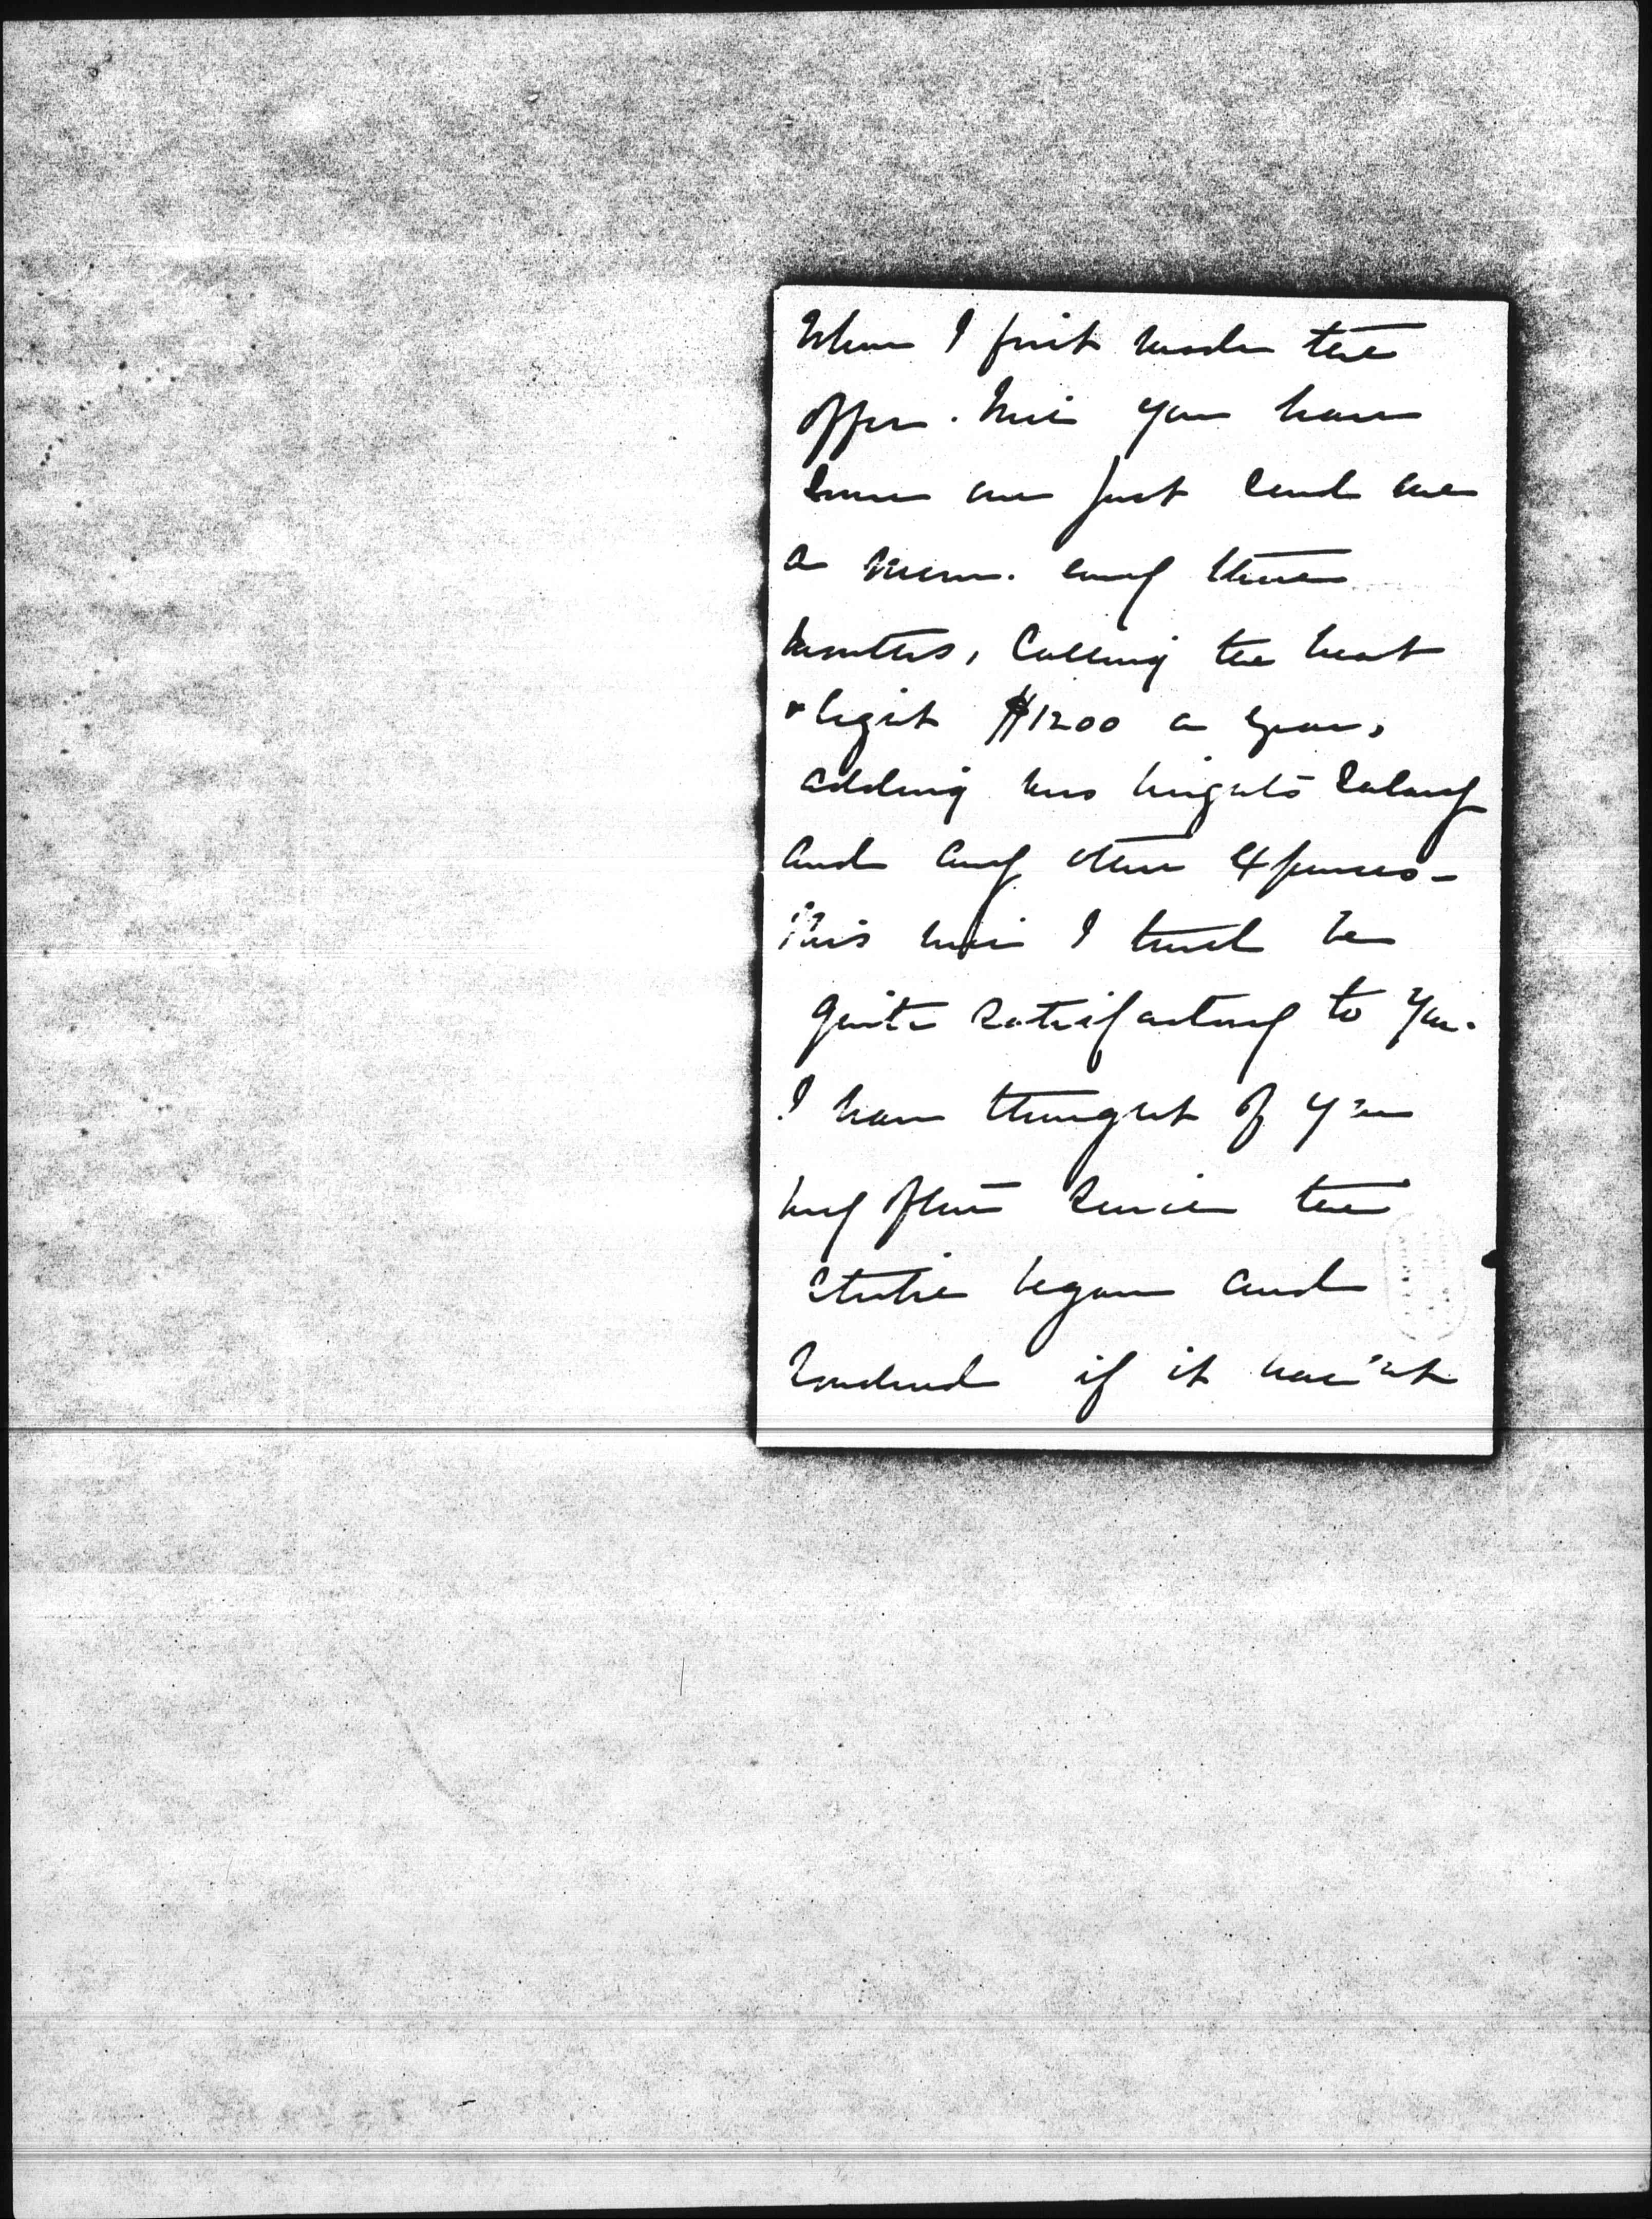 When I first made the
offer. Will you have
some one just send me
a mem. every three
months, calling the heat
& light $1200 a year,
adding Mrs Wright's salary
and any other expenses -
This will I trust be
quite satisfactory to you.
I have thought of you
very often since the
strike began and
wondered if it wasn't